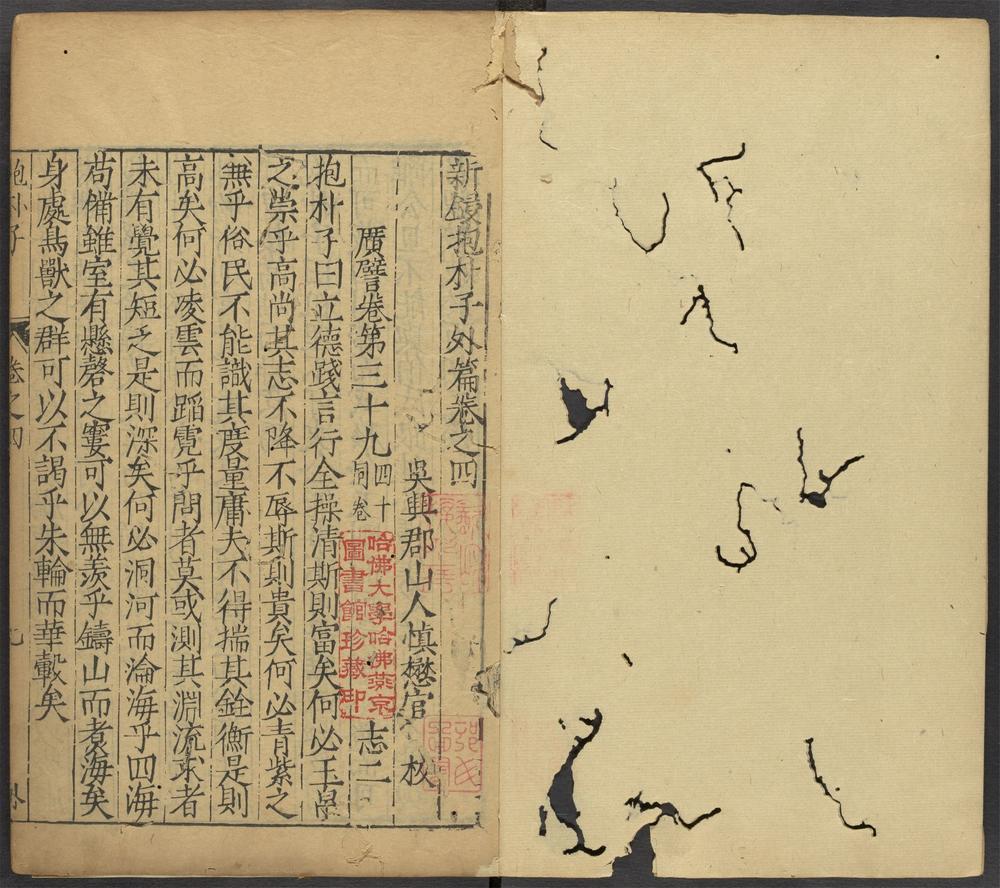 新鋟抱朴子外篇卷之四
吳興郡山人慎懋官 校
廣譬卷第三十九 四十同卷 志二
抱朴子曰立德踐言行全操清斯則富矣何必玉帛
之崇乎高尚其志不降不辱斯則貴矣何必青紫之
無乎俗民不能識其度量庸夫不得揣其銓衡是則
高矣何必凌雲而蹈霓乎問者莫或測其淵流求者
未有覺其短乏是則深矣何必洞河而淪海乎四海
苟備雖室有懸磬之窶可以無羨乎鑄山而煮海矣
身處鳥獸之群可以不謁乎朱輪而華轂矣
抱朴子 卷之四
哈佛大學哈佛燕京
圖書館珍藏印